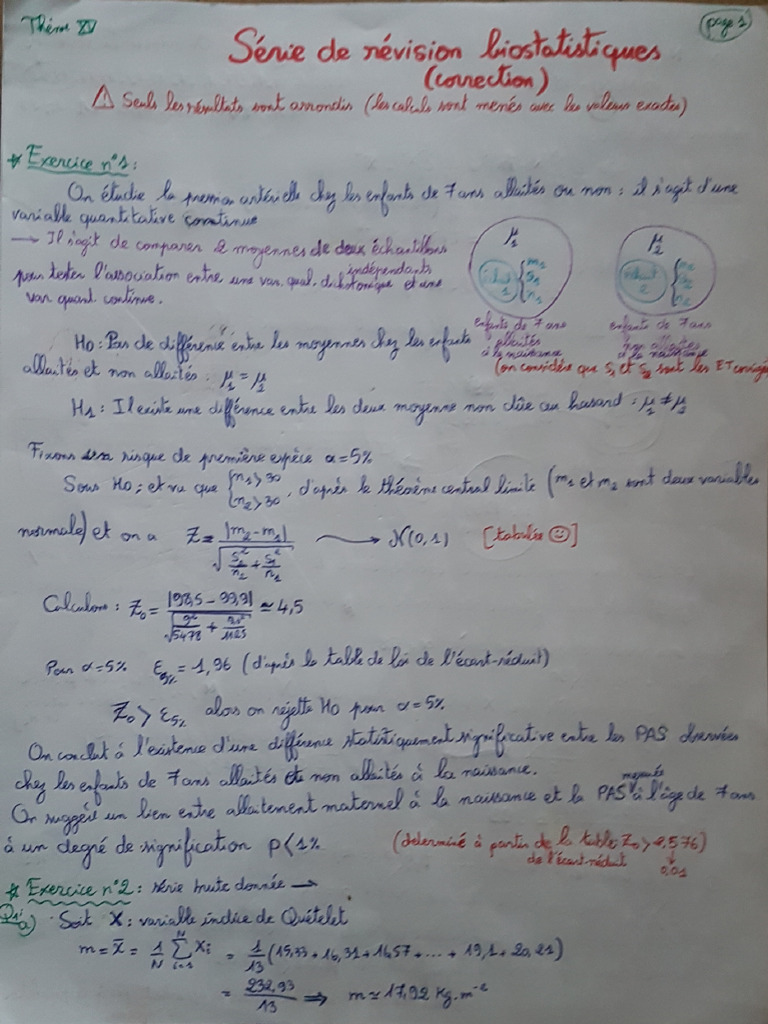 Thème XV
page 1
Série de révision biostatistiques
(correction)
⚠ Seuls les résultats sont arrondis (les calculs sont menés avec les valeurs exactes)
* Exercice n°1:
On étudie la pression artérielle chez les enfants de 7 ans allaités ou non : il s'agit d'une
variable quantitative continue
→ Il s'agit de comparer 2 moyennes de deux échantillons
indépendants
pour tester l'association entre une var. qual. dichotomique et une
var quant continue.
μ1
m1
s1
n1
1
enfants de 7 ans
allaités
à la naissance
μ2
m2
s2
n2
2
enfants de 7 ans
non allaités
à la naissance
(on considère que S1 et S2 sont les ET corrigés
H0 : Pas de différence entre les moyennes chez les enfants
allaités et non allaités : μ1 = μ2
H1 : Il existe une différence entre les deux moyenne non dûe au hasard : μ1 ≠ μ2
Fixons un risque de première espèce α=5%
Sous H0 ; et vu que { n1 > 30 n2 > 30 , d'après le théorème central limite (m1 et m2 sont deux variables
normale) et on a Z = |m2 - m1| / √(S2²/n2 + S1²/n1) → N(0,1) [tabulée ☺]
Calculons : Z0 = |98,5 - 99,9| / ≃ 4,5
Pour α=5% ε5% = 1,96 (d'après la table de loi de l'écart-réduit)
Z0 > ε5% alors on rejette H0 pour α=5%
On conclut à l'existence d'une différence statistiquement significative entre les PAS observées
chez les enfants de 7 ans allaités et non allaités à la naissance.
mesurée
On suggère un lien entre allaitement maternel à la naissance et la PAS à l'âge de 7 ans
à un degré de signification p<1% (déterminé à partir de la table Z0 > 2,576)
de l'écart-réduit
0,01
* Exercice n°2 : série brute donnée →
Q1:
a) Soit X : variable indice de Quételet
m = X̄ = 1/N Σ(i=1→N) Xi = 1/13 (15,33 + 16,31 + 16,57 + ... + 19,1 + 20,21)
= 232,93/13 ⇒ m ≃ 17,92 Kg.m⁻²